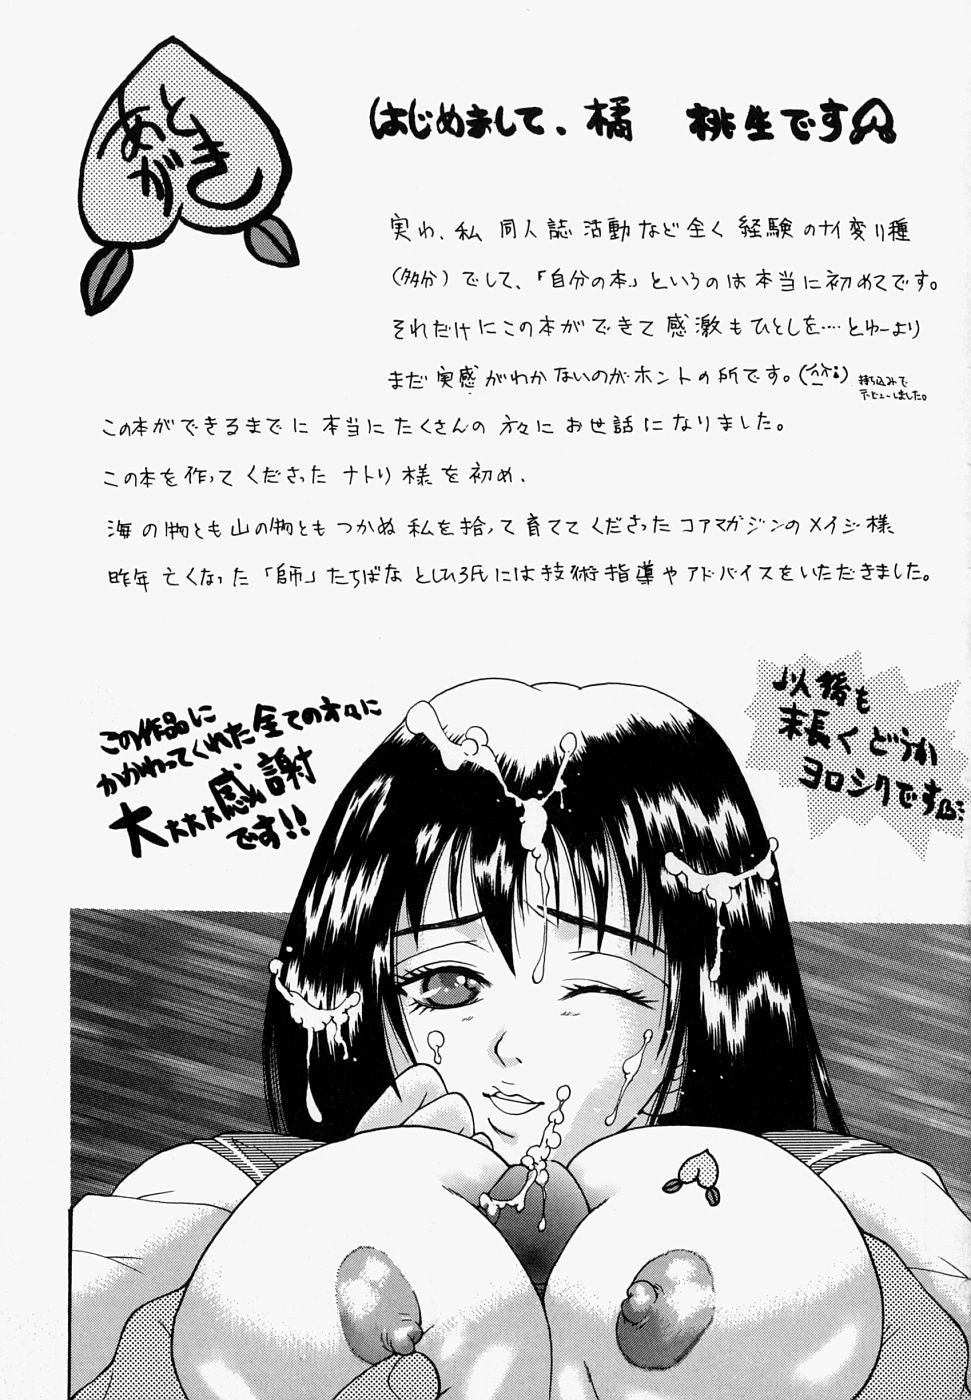 あとがき
はじめまして、橘 桃生です
実わ、私 同人誌 活動など全く 経験のナイ変り種
(多分)でして、「自分の本」というのは本当に初めてです。
それだけにこの本ができて 感激もひとしを…とゆーより
まだ 実感がわかないのがホントの所です。
持ち込みで
デビューしました。
この本ができるまでに 本当にたくさんの 方々に お世話になりました。
この本を作ってくださった ナトリ様を初め、
海の物とも山の物とも つかぬ 私を拾って 育ててくださった コアマガジンのメイジ様
昨年 亡くなった「師」たちばな としひろ氏には技術指導や アドバイスをいただきました。
この作品に
かかわってくれた 全ての方々に
大大大大感謝
です!!
以後も
末長く どうか
ヨロシクです